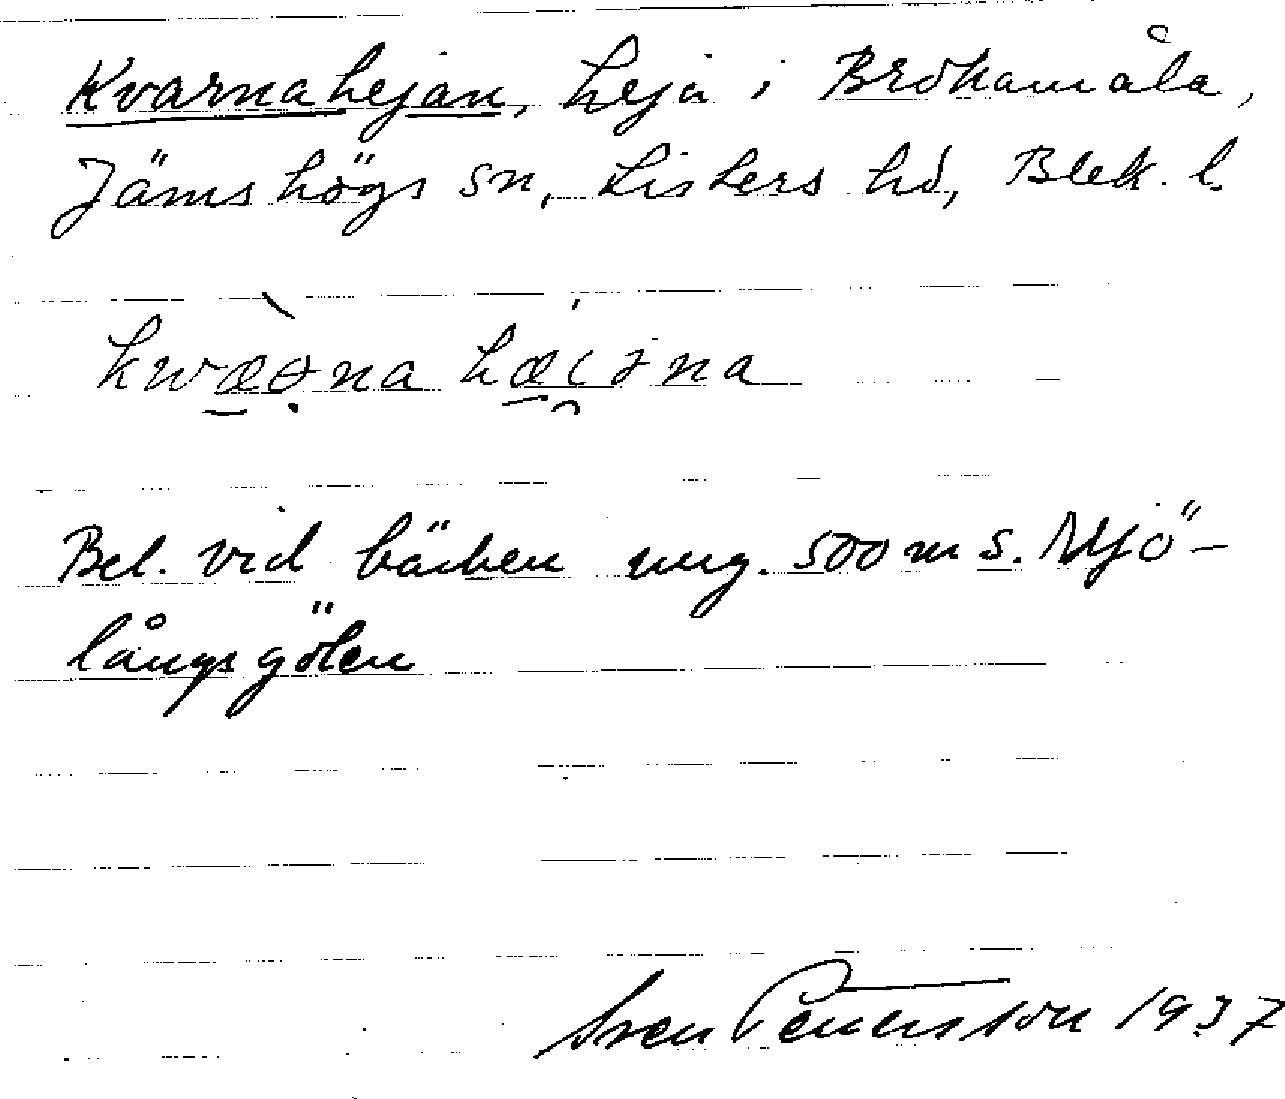 Kvarnahejan, heja i Brokamåla,
Jämshögs sn, Listers hd, Blek. l.
kwæ̀əna hæiəna
Bel. vid bäcken ung. 500 m s. Mjö-
långsgölen
Sven Pettersson 1937